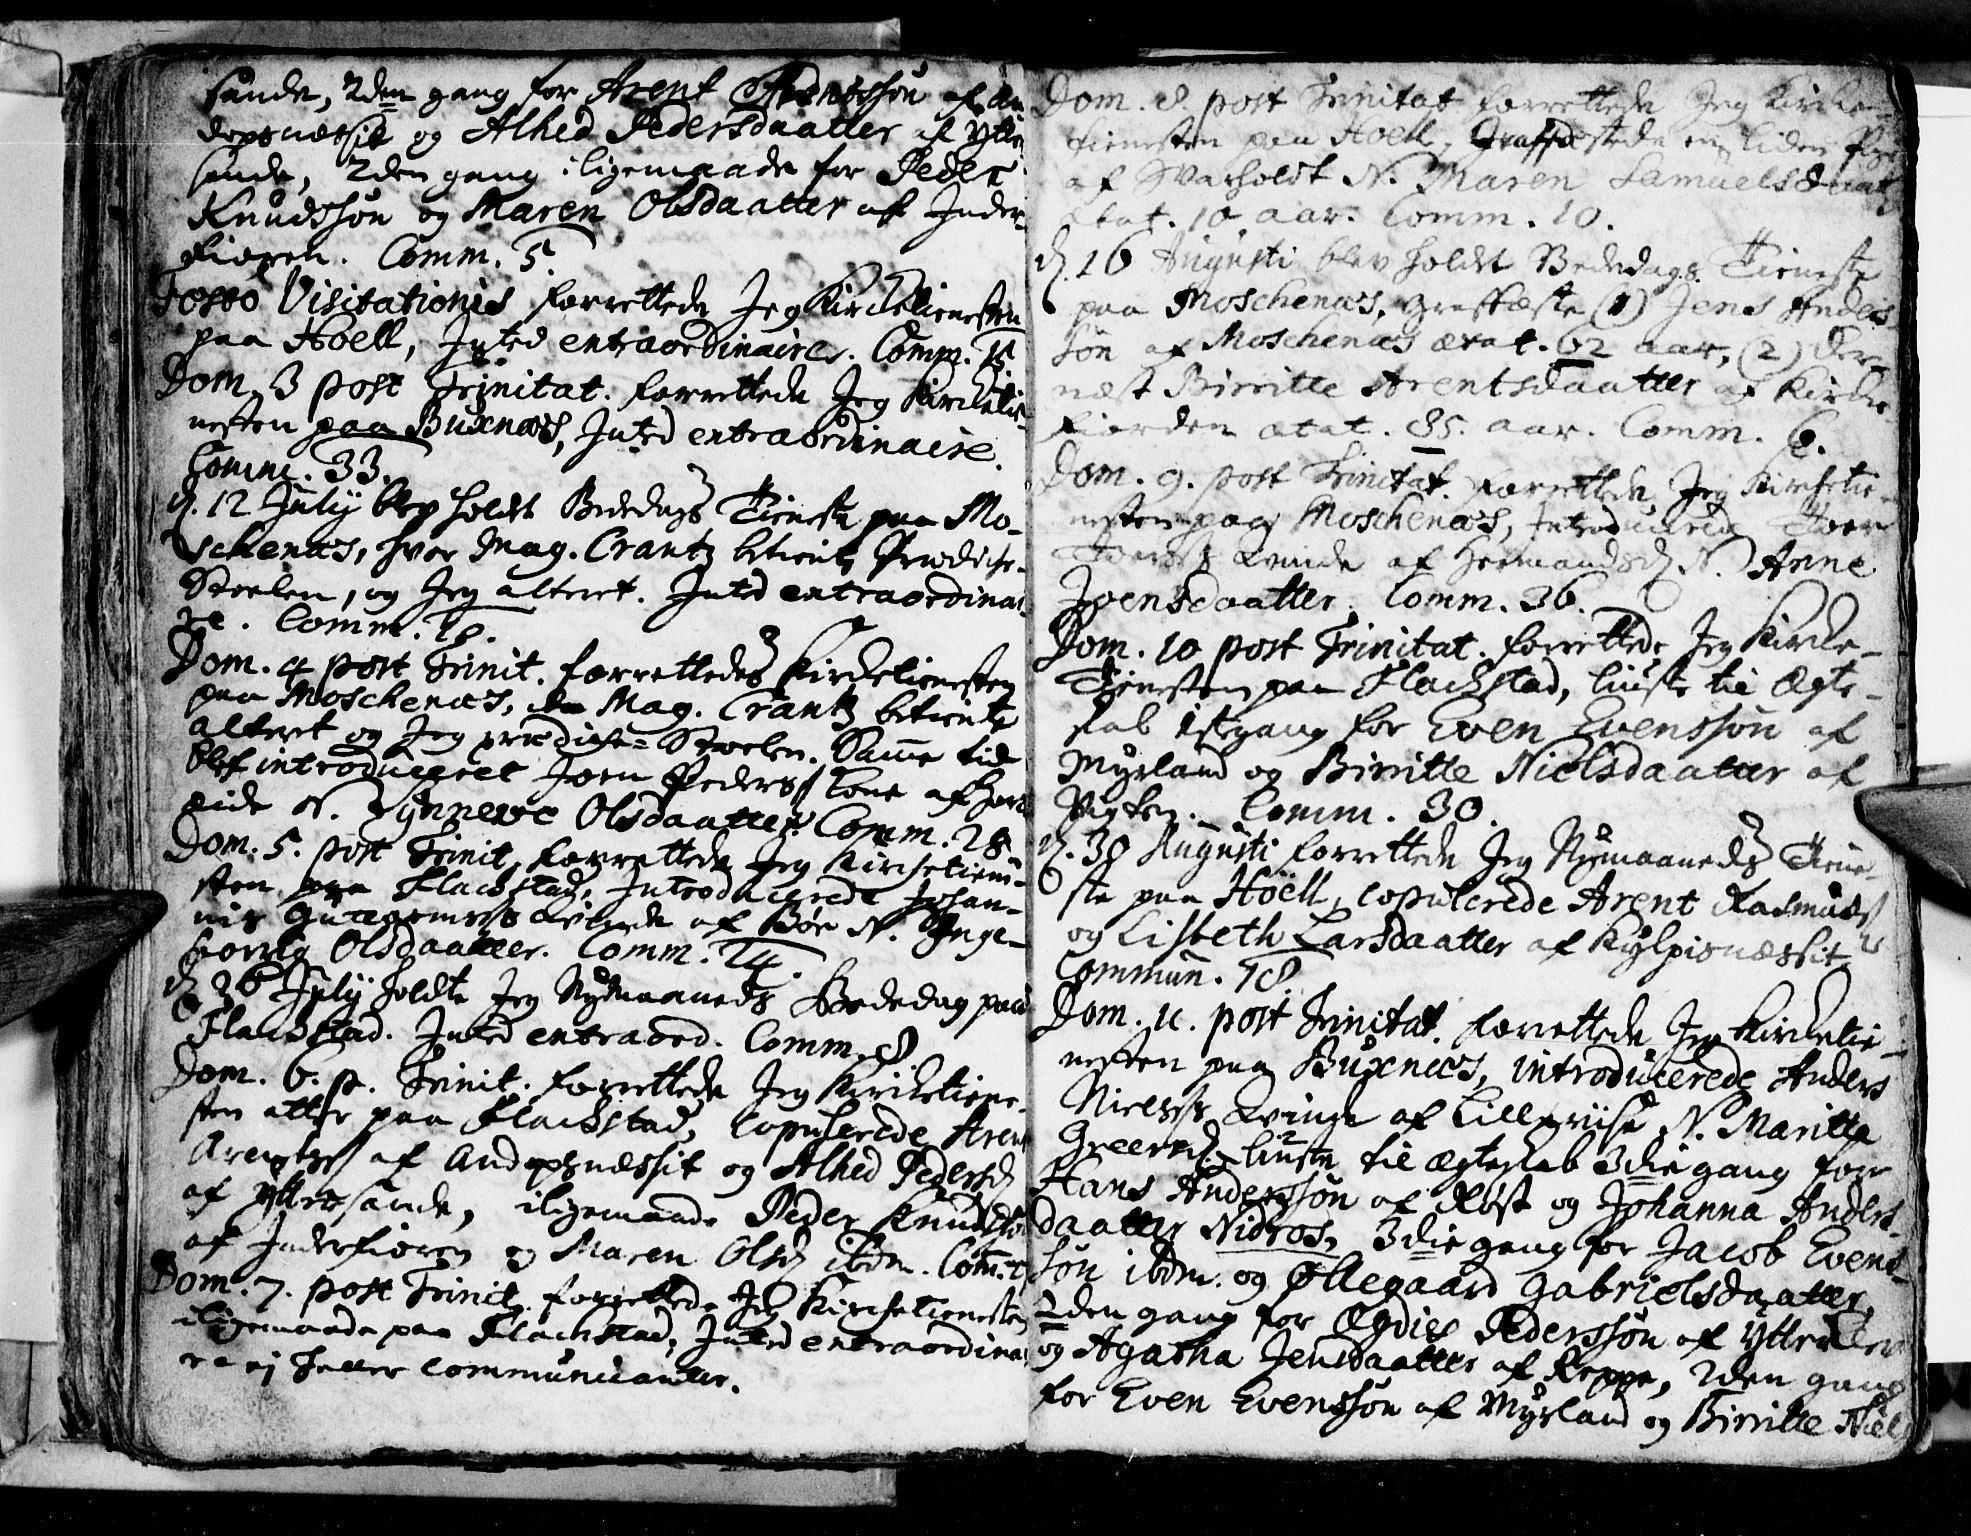 sande, 2den gang for Arent Arentssøn af An-
dopsnæssit og Alhed Pedersdaatter af Yttre
sande, 2den gang iligemaade for Peder
Knudssøn og Maren Olsdaatter af Inder-
fioren. Comm. 5.
Festo Visitationis forrettede Jeg Kircketienesten
paa Hoell, Inted extraordinaire. Comm. 15
Dom. 3 post Trinitat. forrettede Jeg Kircketie-
nesten paa Buxnæs, Inted extraordinaire.
Comm. 33.
d. 12 July blev holdt Bededags Tieneste paa Mo-
schenæs, hvor Mag. Crantz betiente Prædicke-
Stoelen, og Jeg alteret. Inted extraordinai-
re. Comm. 18.
Dom. 4 post Trinit. forrettedes Kircketienesten
paa Moschenæs, da Mag. Crantz betiente
alteret og Jeg prædicke-Stoelen. Samme tid
blef introduceret Joen Pederss Kone af
eide N. Synneve Olsdaatter Comm. 28
Dom. 5. post Trinit. forrettede Jeg Kircketiene-
sten paa Flackstad, Introducerede Johan-
nis Guttormss Qvinde af Bøe N. Inge-
borrig Olsdaatter. Comm. 24.
d. 26 July holdte Jeg Nymaaneds Bededag paa
Flackstad. Inted extraord. Comm. 8
Dom. 6. p. Trinit. forrettede Jeg Kircketiene-
sten atter paa Flackstad, Copulerede Arent
Arentss af Andopsnæssit og Alhed Pedersd
af Yttresande, iligemaade Peder Knudssøn
af Inderfioren og Maren Olsd ibdm. Com.
Dom. 7. post Trinit. forrettede Jeg Kircketienesten
iligemaade paa Flackstad, Inted extraordinai-
re ej heller communicanter.
Dom. 8. post Trinitat forrettede Jeg Kircke-
tienesten paa Hoell, Graffæstede en liden Pige
af Svarholdt N. Maren Samuelsdaat
ætat. 10 aar. Comm. 10.
d. 16 Augusti blev holdt Bededags Tieneste
paa Moschenæs, Graffæste (1) Jens Anders
søn af Moschenæs ætat. 62 aar, (2) der-
næst Birritte Arentsdaatter af Kircke-
fiorden ætat. 85. aar. Comm. 6.
Dom. 9. post Trinitat. forrettede Jeg Kircketie-
nesten paa Moschenæs, Introducerede
Qvinde af N. Anne
Joensdaatter. Comm. 36.
Dom. 10 post Trinitat. forrettede Jeg Kircke-
Tienesten paa Flackstad, liuste til Ægte-
skab 1ste gang for Even Evenssøn af
Myrland og Birritte Nielsdaatter af
Vigten. Comm. 30.
d. 30 Augusti forrettede Jeg Nymaaneds Tiene-
ste paa Hoëll, copulerede Arent Rasmuss
og Lisbeth Larsdaatter af Kylpisnæssit
Commun. 18.
Dom. 11. post Trinitat. forrettede Jeg Kircketie-
nesten paa Buxnæs, introducerede Anders
Nielsss Qvinde af Lilleviise N. Maritta
Greersd. liuste til ægteskab 3die gang for
Hans Anderssøn af Røst og Johanna Anders-
daatter Nidros, 3die gang for Jacob Evens-
søn ibdm. og Øllegaard Gabrielsdaatter,
2den gang for Pederssøn af
og Agatha Jensdaatter af Reppe, 2den gang
for Even Evenssøn af Myrland og Birritte Niel